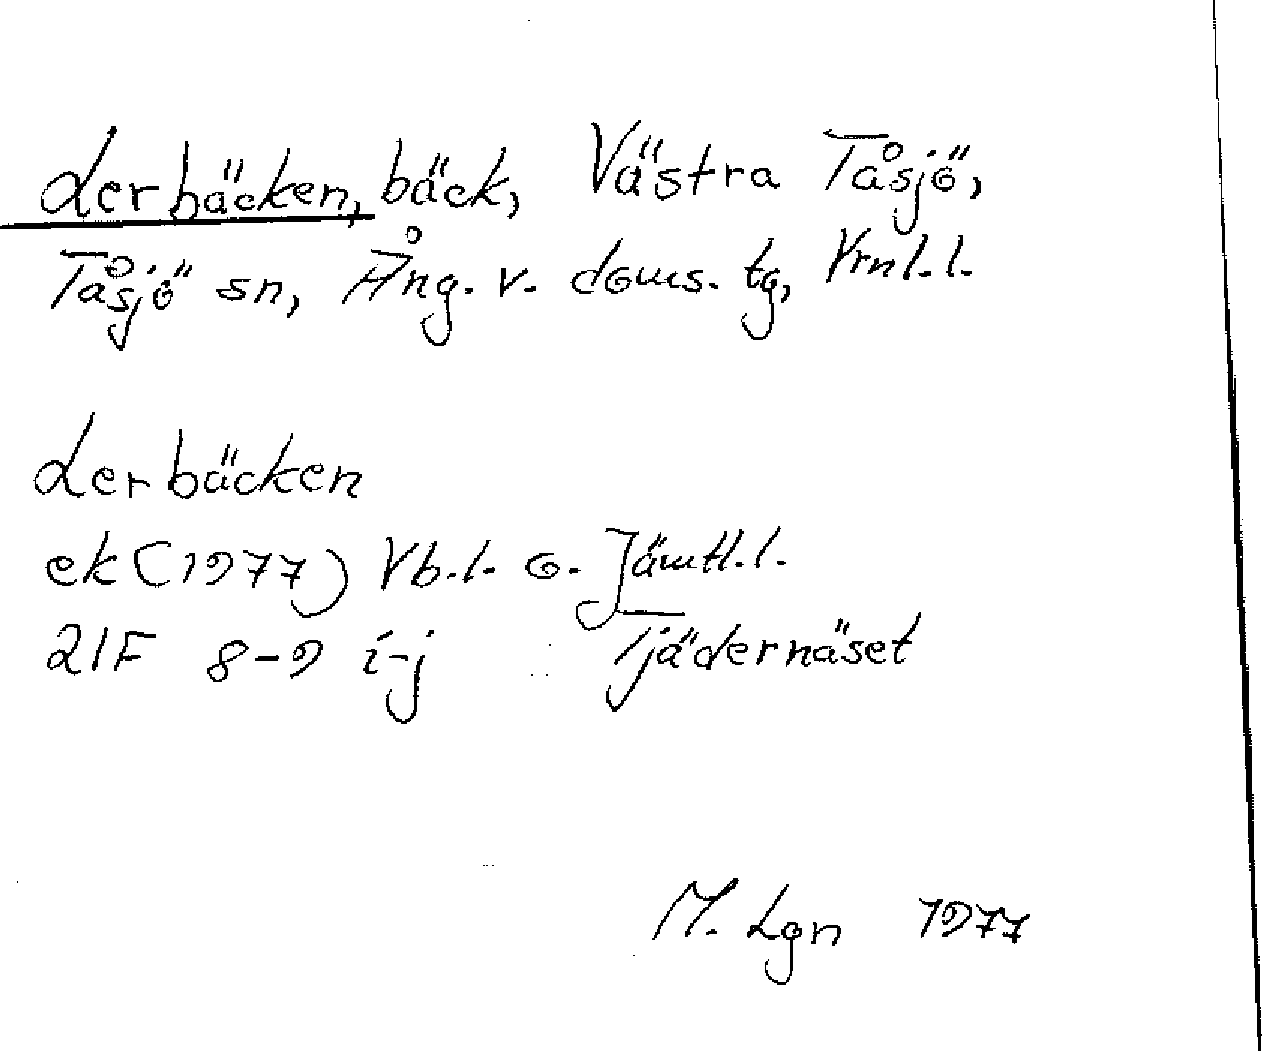 Lerbäcken, bäck, Västra Tåsjö,
Tåsjö sn, Ång. v. doms. tg, Vrnl. l.
Lerbäcken
ek (1977) Vb. l. o. Jämtl. l.
21F 8-9 i-j Tjädernäset
M. Lgn 1977